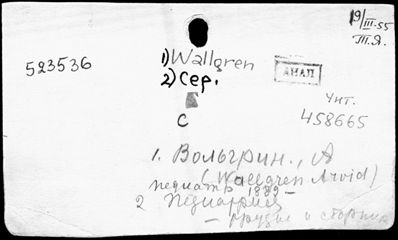 19/III-55
Т.Я.
1) Wallgren
2) Сер.
523536
АНАП
Чит.
458665
С
1. Вольгрин., А
(Wallgren Arvid)
педиатр 1889-
2 Педиатрия
- и сборник